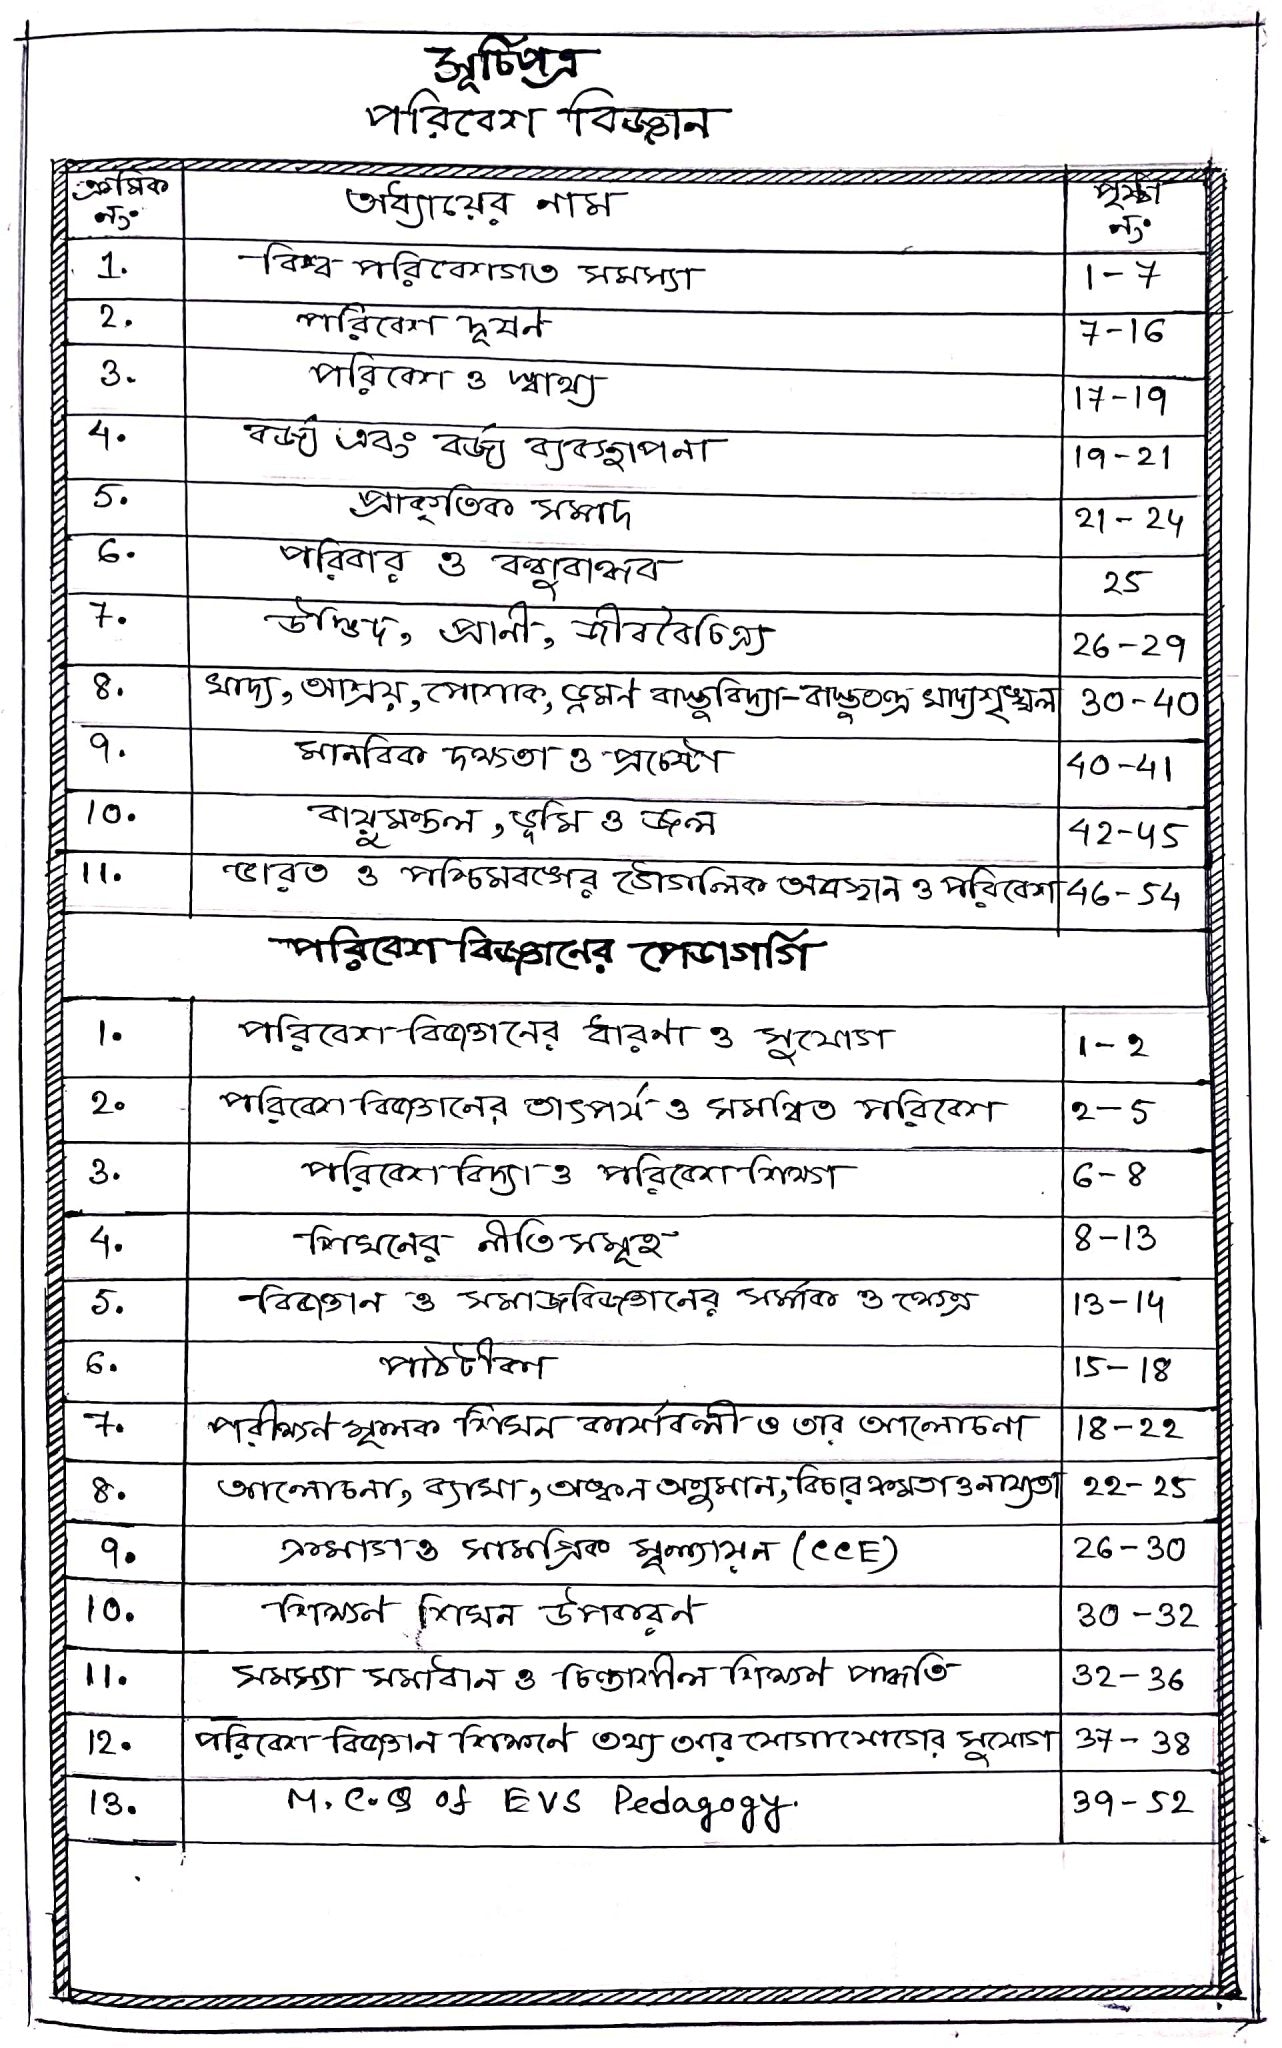 সূচিপত্র
পরিবেশ বিজ্ঞান
ক্রমিক নং অধ্যায়ের নাম পৃষ্ঠা নং
1. বিশ্ব পরিবেশগত সমস্যা 1-7
2. পরিবেশ দূষণ 7-16
3. পরিবেশ ও স্বাস্থ্য 17-19
4. বর্জ্য এবং বর্জ্য ব্যবস্থাপনা 19-21
5. প্রাকৃতিক সম্পদ 21-24
6. পরিবার ও বন্ধুবান্ধব 25
7. উদ্ভিদ, প্রানী, জীববৈচিত্র্য 26-29
8. খাদ্য, আশ্রয়, পোশাক, ভ্রমন বাস্তুবিদ্যা-বাস্তুতন্ত্র খাদ্যশৃঙ্খল 30-40
9. মানবিক দক্ষতা ও প্রচেষ্টা 40-41
10. বায়ুমন্ডল, ভূমি ও জল 42-45
11. ভারত ও পশ্চিমবঙ্গের ভৌগলিক অবস্থান ও পরিবেশ 46-54
পরিবেশ বিজ্ঞানের পেডাগগি
1. পরিবেশ বিজ্ঞানের ধারনা ও সুযোগ 1-2
2. পরিবেশ বিজ্ঞানের তাৎপর্য ও সমন্বিত পরিবেশ 2-5
3. পরিবেশ বিদ্যা ও পরিবেশ শিক্ষা 6-8
4. শিখনের নীতি সমূহ 8-13
5. বিজ্ঞান ও সমাজবিজ্ঞানের সর্ম্পক ও ক্ষেত্র 13-14
6. পাঠটীকা 15-18
7. পরীক্ষণ মূলক শিখন কার্যাবলী ও তার আলোচনা 18-22
8. আলোচনা, ব্যাখা, অঙ্কন অনুমান, বিচার ক্ষমতা ও নায্যতা 22-25
9. ক্রমাগত ও সামগ্রিক মূল্যায়ন (CCE) 26-30
10. শিক্ষণ শিখন উপকরণ 30-32
11. সমস্যা সমাধান ও চিন্তাশীল শিক্ষণ পদ্ধতি 32-36
12. পরিবেশ বিজ্ঞান শিক্ষণে তথ্য আর যোগাযোগের সুযোগ 37-38
13. M.C.Q of EVS Pedagogy. 39-52